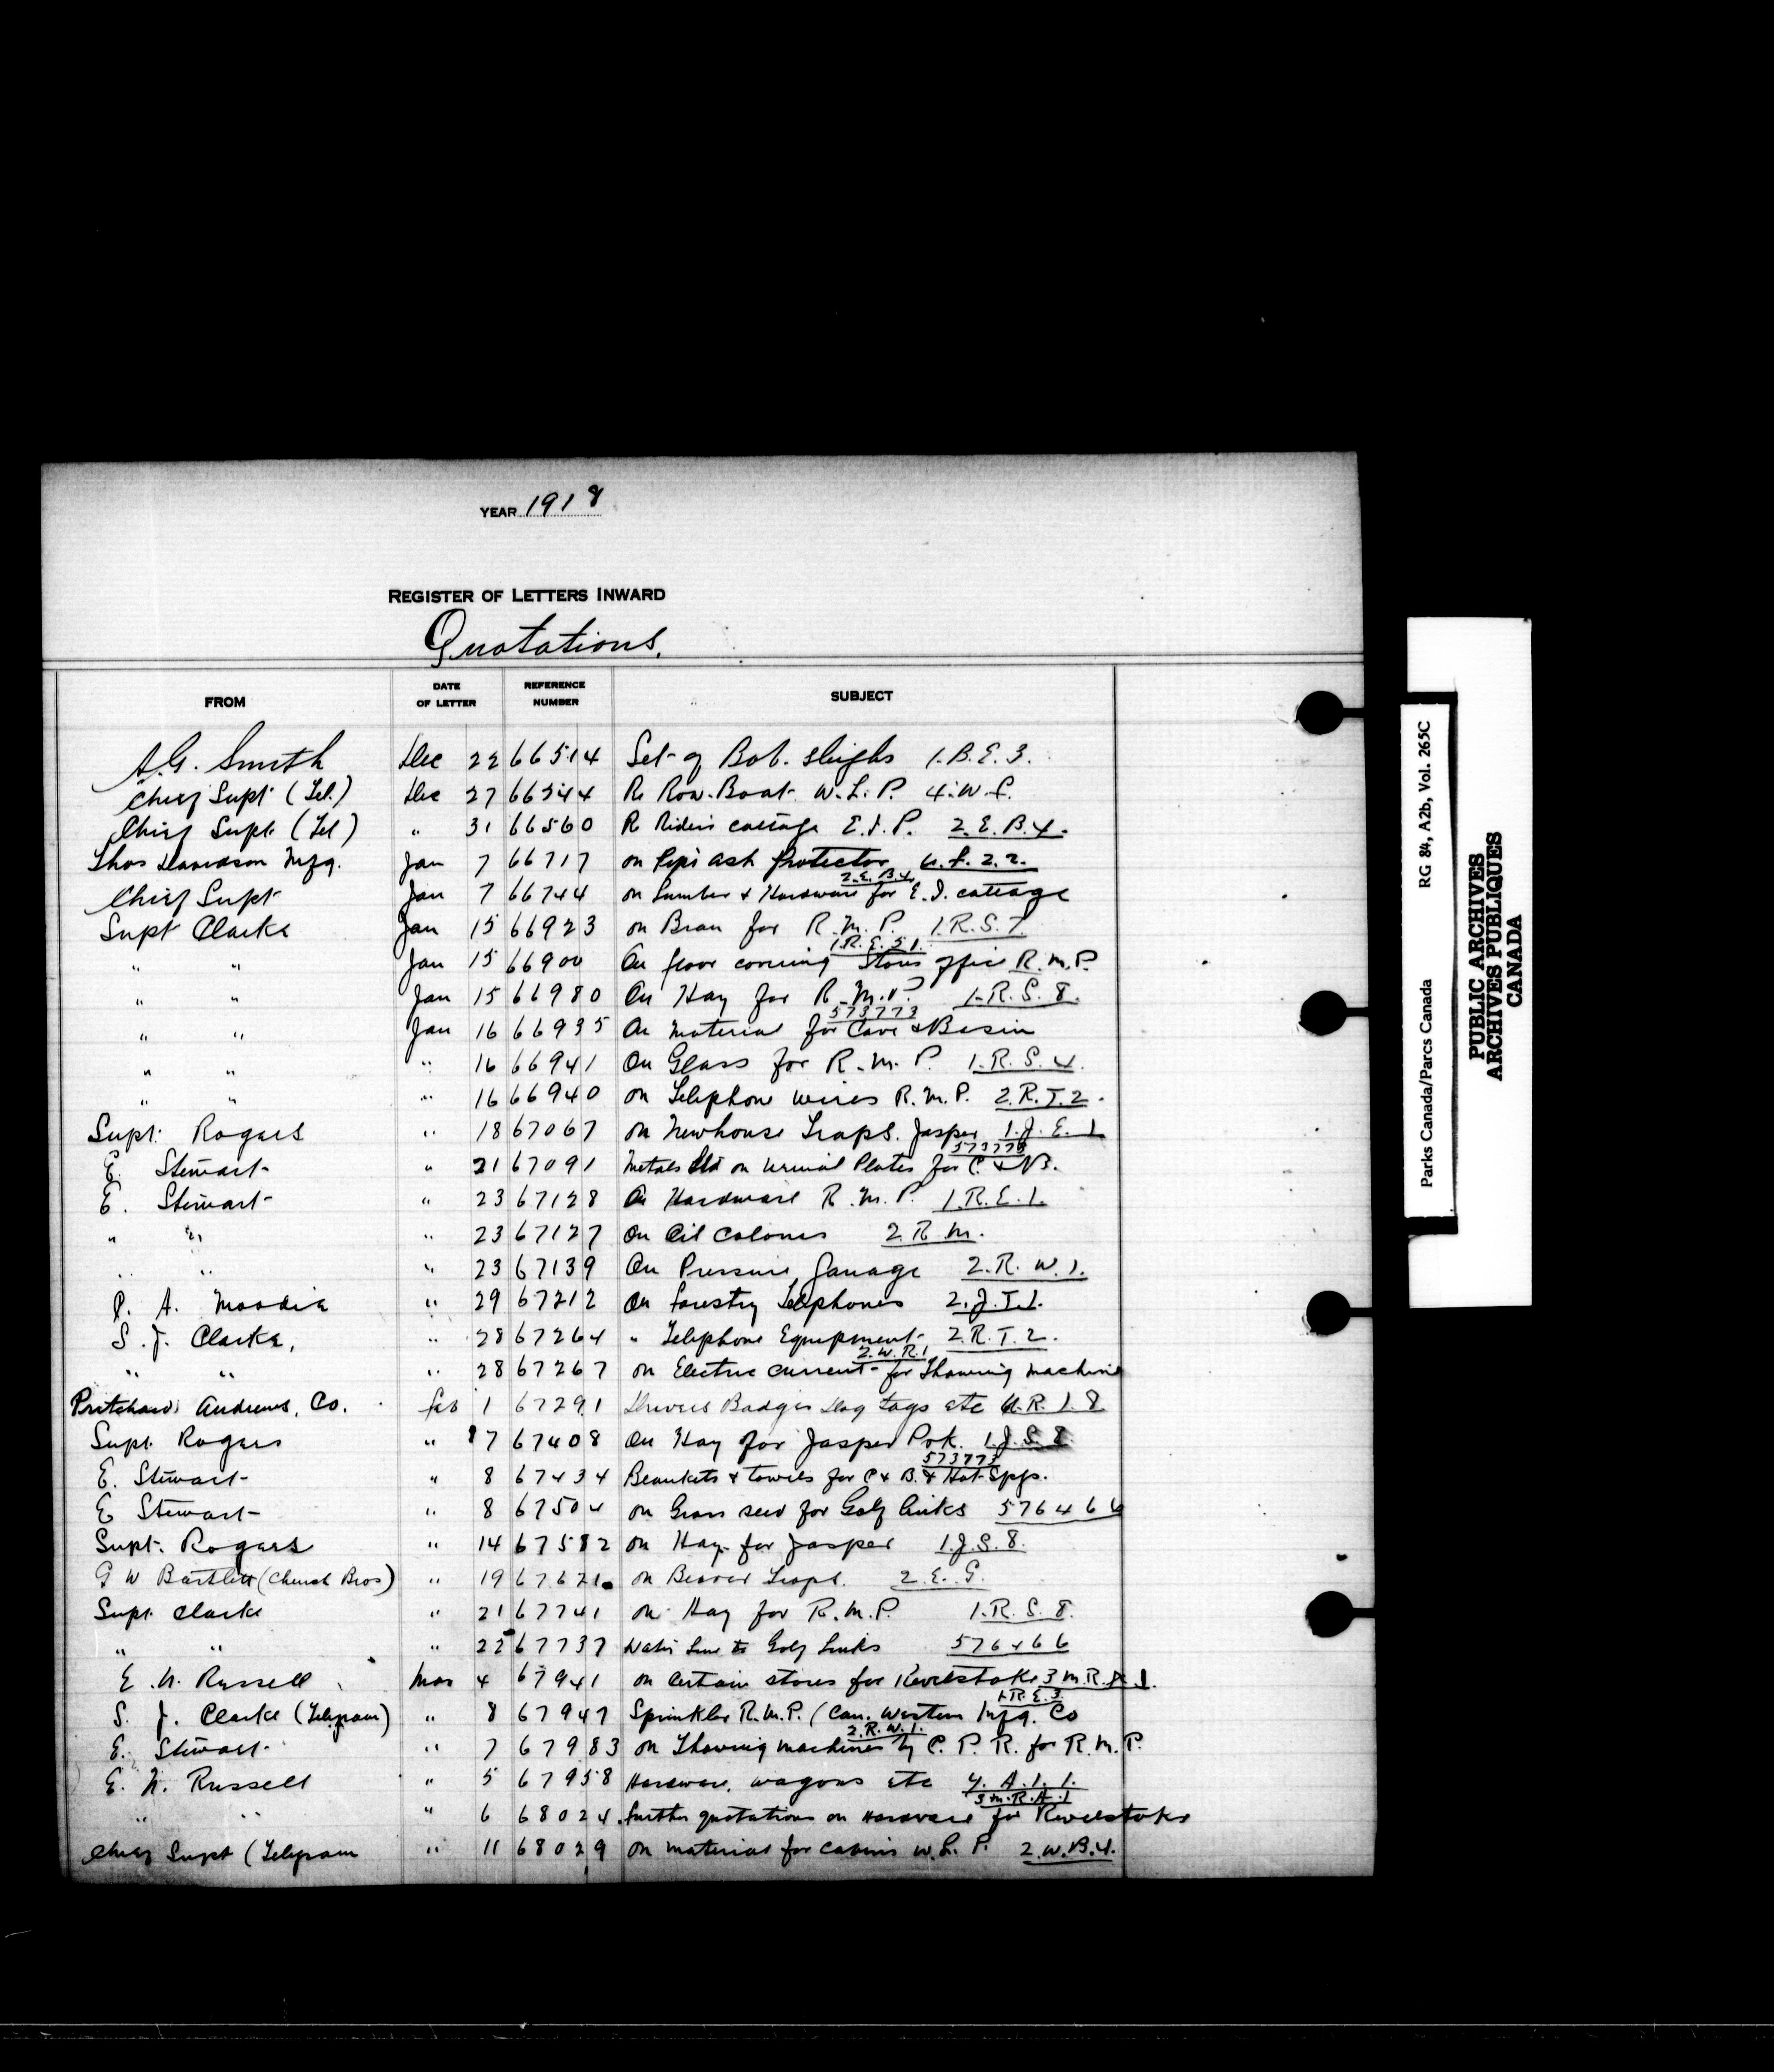 YEAR 1918
REGISTER OF LETTERS INWARD
Quotations.
FROM DATE OF LETTER REFERENCE NUMBER SUBJECT
A.G. Smith Dec 22 66514 Set of Bob. sleighs 1.B.E.3.
Chief Supt (Tel.) Dec 27 66544 Re Row-Boat W.L.P. 4.W.f.
Chief Supt (Tel) " 31 66560 Re Riders cottage E.I.P. 2.E.B.4.
Thos Davidson Mfg. Jan 7 66717 on Pipe ash protector U.f.22.
2.E.B.4.
Chief Supt Jan 7 66744 on Lumber & Hardware for E.I. cottage
Supt Clarke Jan 15 66923 on Bran for R.M.P. 1.R.S.7.
1.R.E.51.
" " Jan 15 66900 On floor covering Stores office R.M.P.
" " Jan 15 66980 On Hay for R.M.P. 1.R.S.8.
573773
" " Jan 16 66935 On material for Cave & Basin
" " " 16 66941 On Glass for R.M.P. 1.R.S.4.
" " " 16 66940 on Telephone wires R.M.P. 2.R.T.2.
Supt. Rogers " 18 67067 on Newhouse Traps. Jasper 1.J.E.1
573773
E. Stewart " 21 67091 Metals Ltd on Urinal Plates for C. & B.
E. Stewart " 23 67128 On Hardware R.M.P. 1.R.E.1.
" " " 23 67127 On Oil Colours 2.R.M.
" " " 23 67139 On Pressure Gauage 2.R.W.1.
P. A. Moodie " 29 67212 On Forestry Telephones 2.J.T.1.
S. J. Clarke, " 28 67264 " Telephone Equipment 2.R.T.2.
2.W.R.1
" " " 28 67267 on Electric current for Thawing machine
Pritchard Andrews, Co. feb 1 67291 Drivers Badges Dog tags etc U.R.1.8
Supt. Rogers " 7 67408 On Hay for Jasper Prk. 1.J.S.8
573773
E. Stewart " 8 67434 Blankets & towels for C & B. & Hot Spgs.
E Stewart " 8 67504 on Grass seed for Golf links 576466
Supt. Rogers " 14 67582 on Hay for Jasper 1.J.S.8.
G W Bartlett (Church Bros) " 19 67621 on Beaver Traps. 2.E.G.
Supt. Clarke " 21 67741 on Hay for R.M.P. 1.R.S.8.
" " " 22 67737 Water Line to Golf Links 576466
E. N. Russell Mar 4 67941 on Certain stores for Revelstoke 3 M.R.A.1.
1.R.E.3.
S. J. Clarke (Telegram) " 8 67947 Sprinkler R.M.P. (Can. Western Mfg. Co
2.R.W.1.
E. Stewart " 7 67983 on Thawing machines by C.P.R. for R.M.P.
E. N. Russell " 5 67958 Hardware, wagons etc 4.A.1.1.
3 M.R.A.1
" " " 6 68024 further quotations on Hardware for Revelstoke
Chief Supt (Telegram " 11 68029 on material for cabins W.L.P. 2.W.B.4.
Parks Canada/Parcs Canada RG 84, A2b, Vol. 265C
PUBLIC ARCHIVES
ARCHIVES PUBLIQUES
CANADA